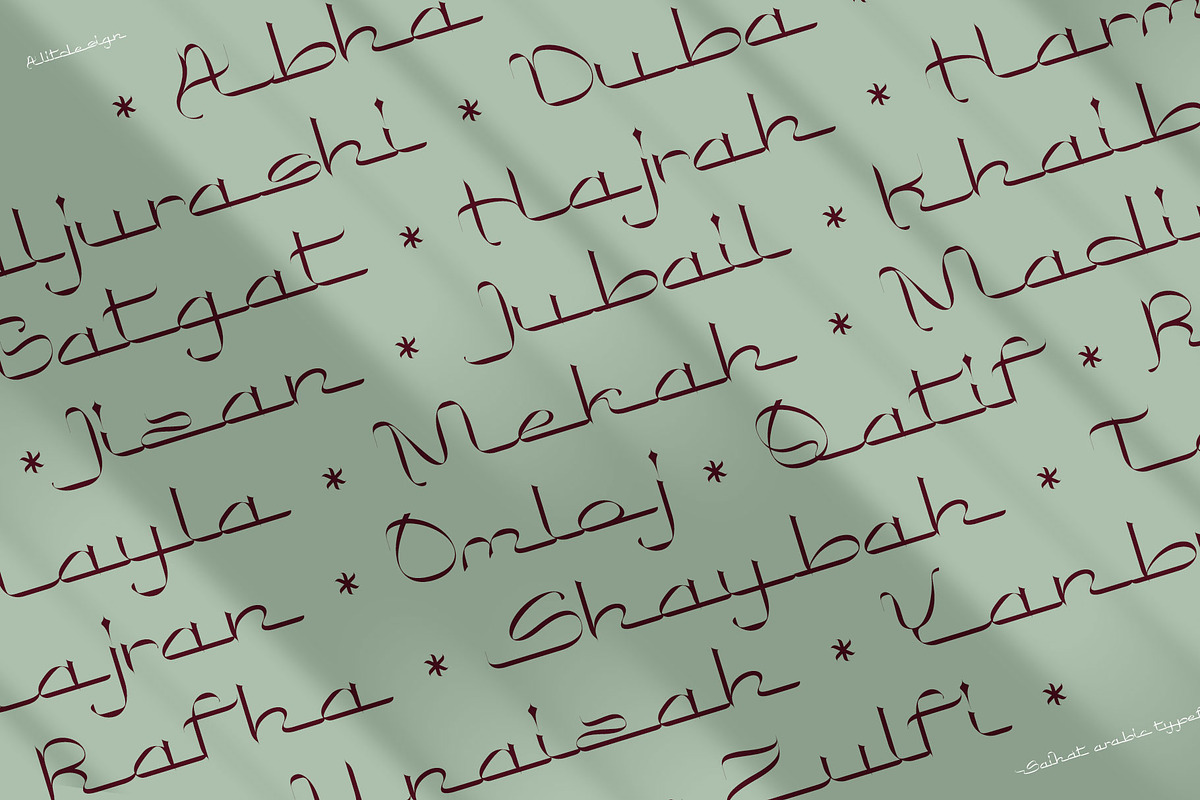 Alitdesign
* Abha
ljurashi * Duba
Satgat * Hajrah * Harm
* Jizan * Jubail * Khaib
Layla * Mekah * Madi
ajran * Omloj * Qatif * R
Rafha * Shaybah * Ta
Uraizah * Yanb
Zulfi *
Saihat arabic typef